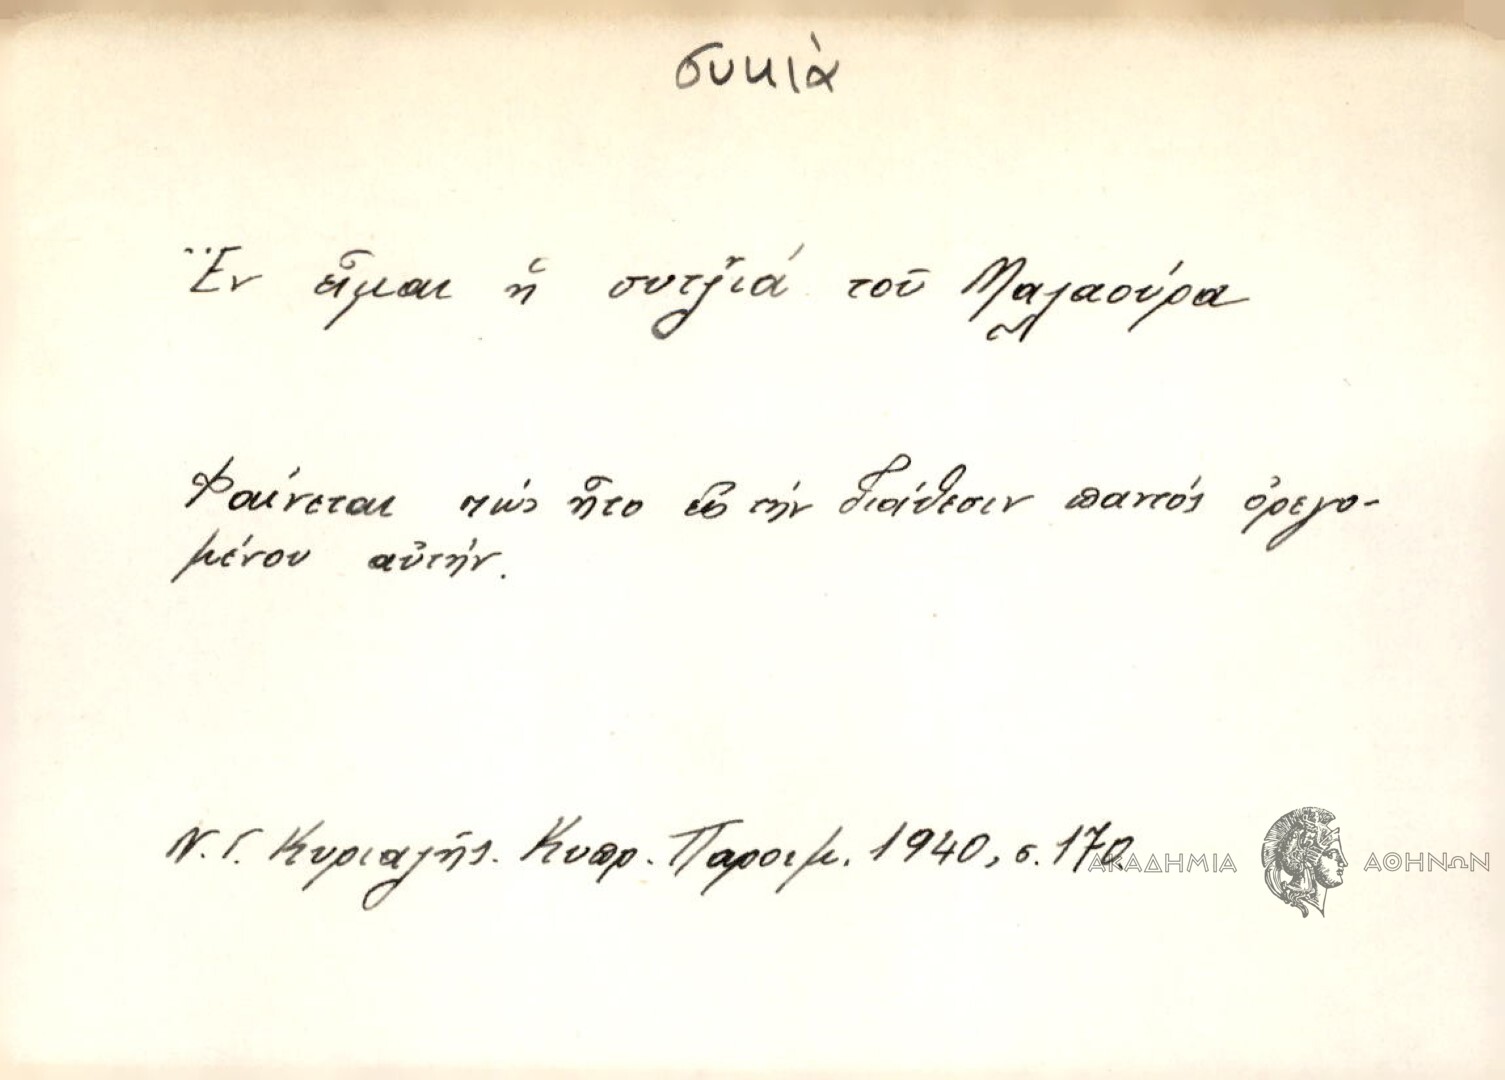 συκιὰ
Ἔν εἶμαι ἡ συτζ̆ιά τοῦ Μαλαούρα
Φαίνεται πώς ἦτο εἰς τήν διάθεσιν παντός ὀρεγο-
μένου αὐτήν.
Ν. Γ. Κυριαζῆς. Κυπρ. Παροιμ. 1940, σ. 170
ΑΚΑΔΗΜΙΑ ΑΘΗΝΩΝ